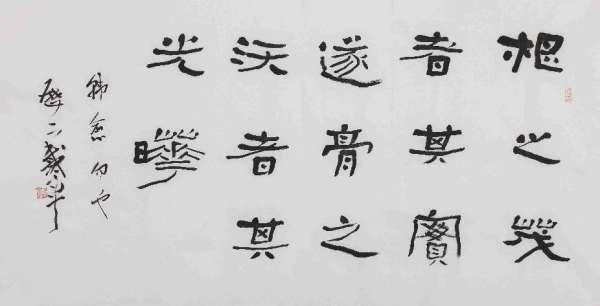 根之茂
者其實
遂膏之
沃者其
光曄
韩愈句也